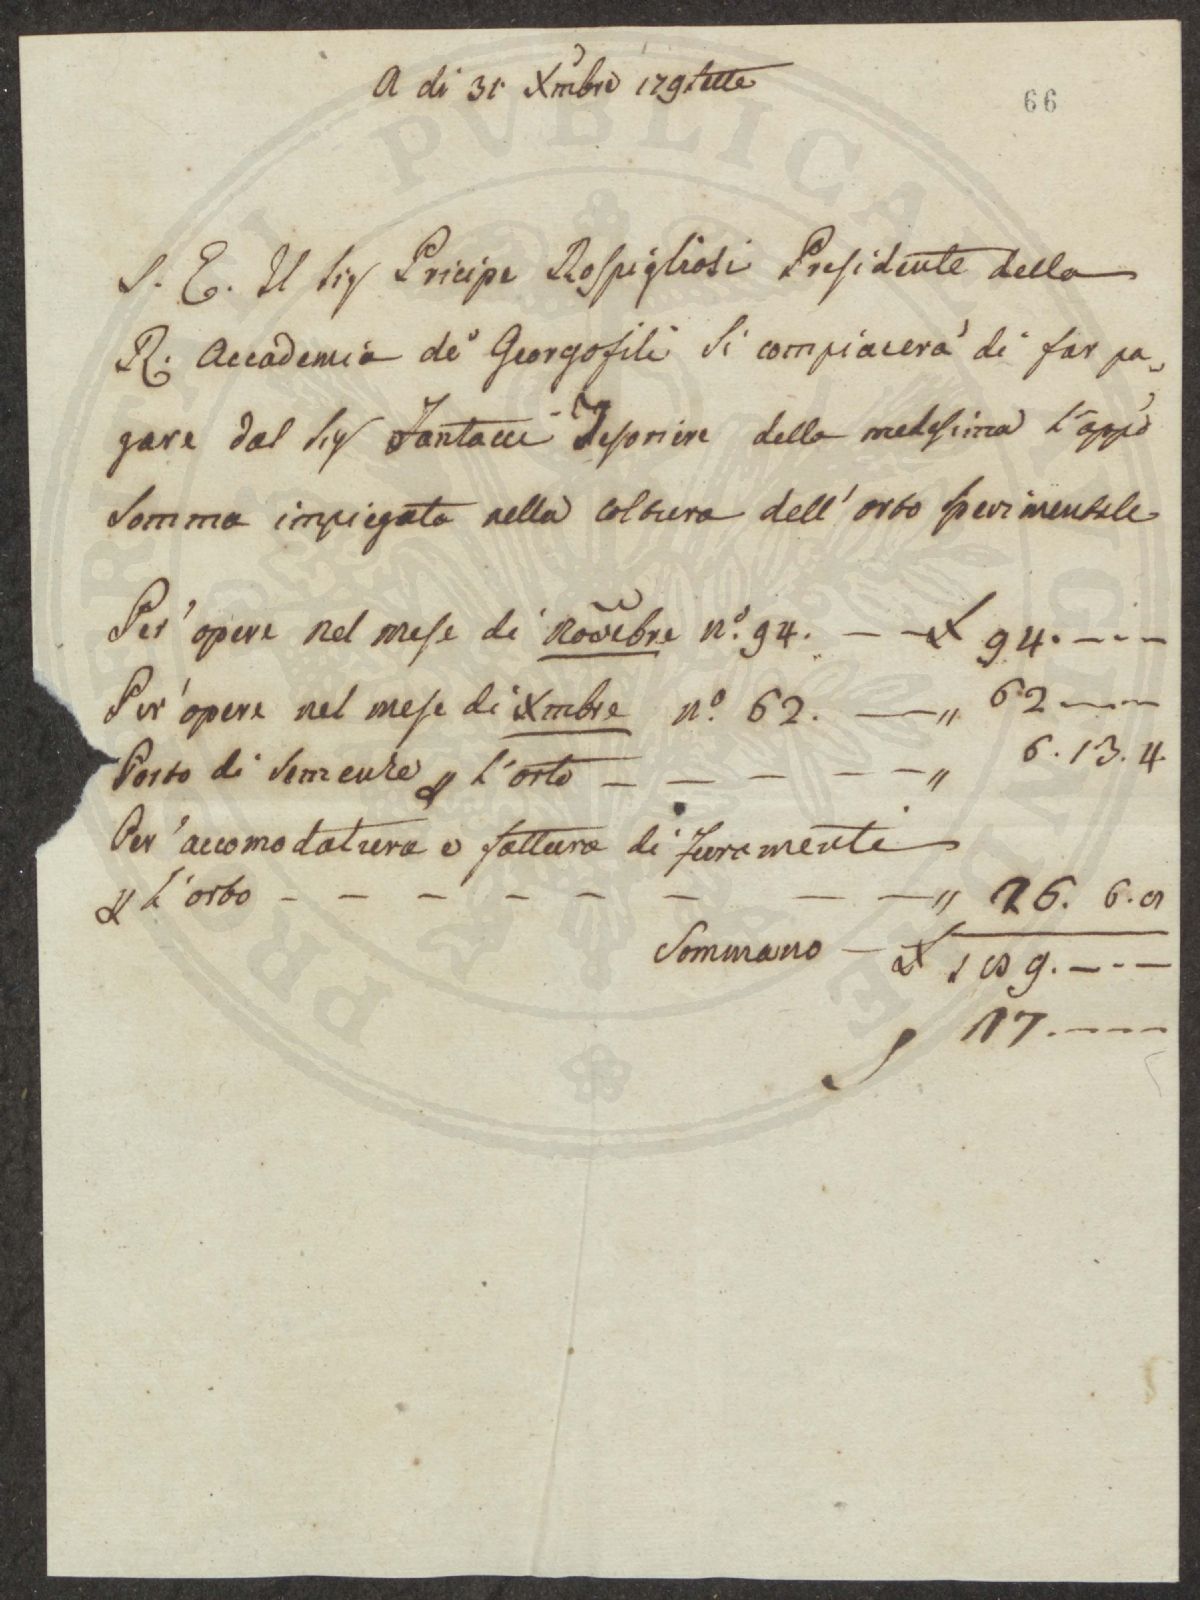 A di 31 Xmbre 179sette
66
S. E. Il Sig Pricipe Rospigliosi Presidente della
R. Accademia de' Georgofili Si compiacerà di far pa-
gare dal Sig Fantacci Tesoriere della medesima l'appo
Somma impiegata nella coltura dell' orto sperimentale
Per opere nel mese di Novebre n.o 94. — — £ 94. — - —
Per opere nel mese di Xmbre n.o 62. — " 62 — - —
Porto di Semenze p L'orto — — — — — " 6. 13. 4
Per accomodatura e fattura di
p L'orto — — — — — — — — " 26. 6. 8
Sommano — £ 189. — - —
17. — - —
PRO PVBLICAE